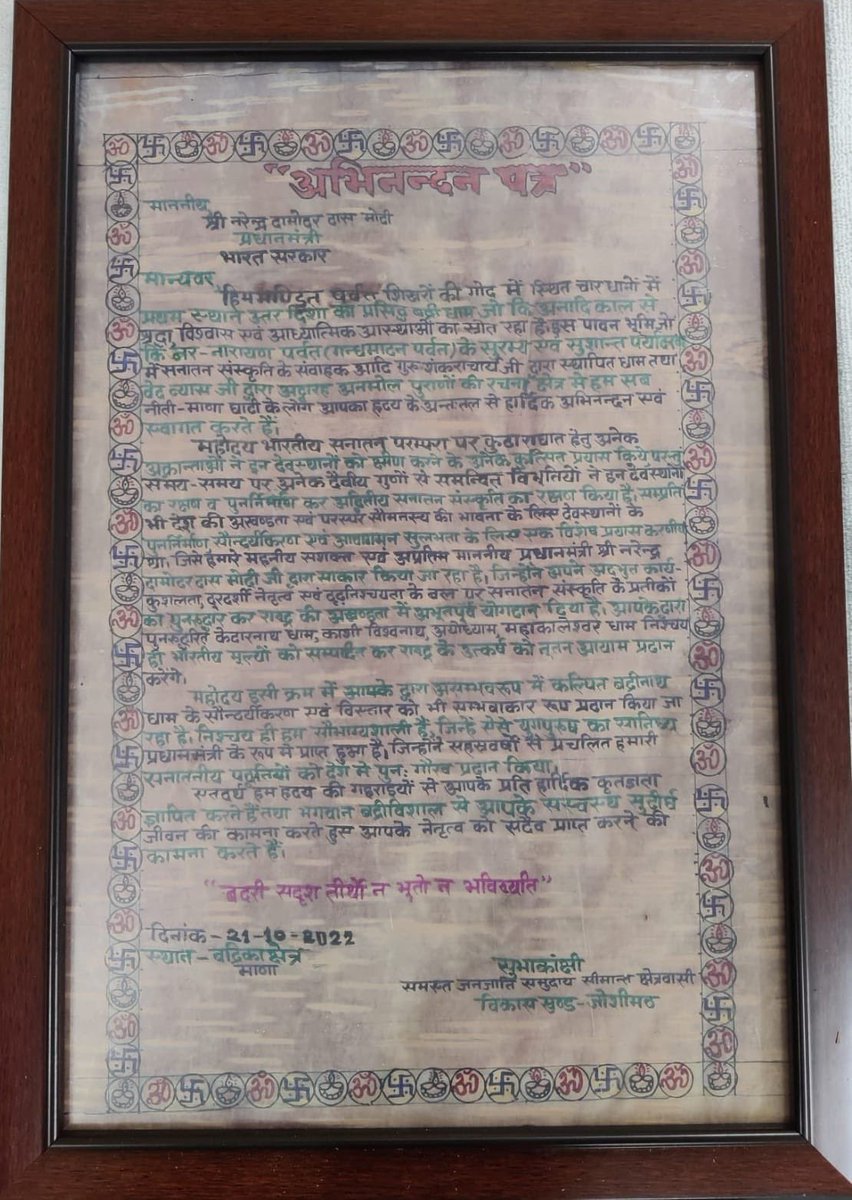 "अभिनन्दन पत्र"
माननीय
श्री नरेन्द्र दामोदर दास मोदी
प्रधानमंत्री
भारत सरकार
मान्यवर
हिममण्डित पर्वत शिखरों की गोद में स्थित चार धामों में
प्रथम स्थाने उत्तर दिशा का प्रसिद्ध बद्री धाम जो कि अनादि काल से
श्रद्धा विश्वास एवं आध्यात्मिक आस्थाओं का स्रोत रहा है, इस पावन भूमि जो
कि नर-नारायण पर्वत (गन्धमादन पर्वत) के सुरम्य एवं सुशान्त पर्यावरण
में सनातन संस्कृति के संवाहक आदि गुरू शंकराचार्य जी द्वारा स्थापित धाम तथा
वेद व्यास जी द्वारा अट्ठारह अनमोल पुराणों की रचना क्षेत्र से हम सब
नीती-माणा घाटी के लोग आपका हृदय के अन्तःतल से हार्दिक अभिनन्दन एवं
स्वागत करते हैं।
महोदय भारतीय सनातन परम्परा पर कुठाराघात हेतु अनेक
अक्रान्ताओं ने इन देवस्थानों को क्षीण करने के अनेक कुत्सित प्रयास किये परन्तु
समय-समय पर अनेक दैवीय गुणों से समन्वित विभूतियों ने इन देवस्थानों
का रक्षण व पुनर्निर्माण कर अद्वितीय सनातन संस्कृति का रक्षण किया है, सम्प्रति
भी देश की अखण्डता एवं परस्पर सौमनस्य की भावना के लिए देवस्थानों के
पुनर्निर्माण सौन्दर्यीकरण एवं आवागमन सुलभता के लिए एक विशेष प्रयास करणीय
था, जिसे हमारे महनीय सशक्त एवं अप्रतिम माननीय प्रधानमंत्री श्री नरेन्द्र
दामोदर दास मोदी जी द्वारा साकार किया जा रहा है, जिन्होंने अपने अदभुत कार्य-
कुशलता, दूरदर्शी नेतृत्व एवं दृढ़निश्चयता के बल पर सनातन संस्कृति के प्रतीकों
का पुनरुद्धार कर राष्ट्र की अखण्डता में अभूतपूर्व योगदान दिया है, आपके द्वारा
पुनरुद्धरित केदारनाथ धाम, काशी विश्वनाथ, अयोध्याम, महाकालेश्वर धाम निश्चय
ही भारतीय मूल्यों को सम्पादित कर राष्ट्र के उत्कर्ष को नूतन आयाम प्रदान
करेंगे।
महोदय इसी क्रम में आपके द्वारा असम्भव रूप में कल्पित बद्रीनाथ
धाम के सौन्दर्यीकरण एवं विस्तार को भी सम्भवाकार रूप प्रदान किया जा
रहा है, निश्चय ही हम सौभाग्यशाली हैं, जिन्हें ऐसे युगपुरुष का सानिध्य
प्रधानमंत्री के रूप में प्राप्त हुआ है, जिन्होंने सहस्रवर्षों से प्रचलित हमारी
सनातनीय पद्धतियों को देश में पुनः गौरव प्रदान किया।
एतदर्थ हम हृदय की गहराइयों से आपके प्रति हार्दिक कृतज्ञता
ज्ञापित करते हैं तथा भगवान बद्रीविशाल से आपके सस्वस्थ सुदीर्घ
जीवन की कामना करते हुए आपके नेतृत्व को सदैव प्राप्त करने की
कामना करते हैं।
"बदरी सदृश तीर्थो न भूतो न भविष्यति"
दिनांक-21-10-2022
स्थान-बद्रिका क्षेत्र
माणा
सुभाकांक्षी
समस्त जनजाति समुदाय सीमान्त क्षेत्रवासी
विकास खण्ड-जोशीमठ